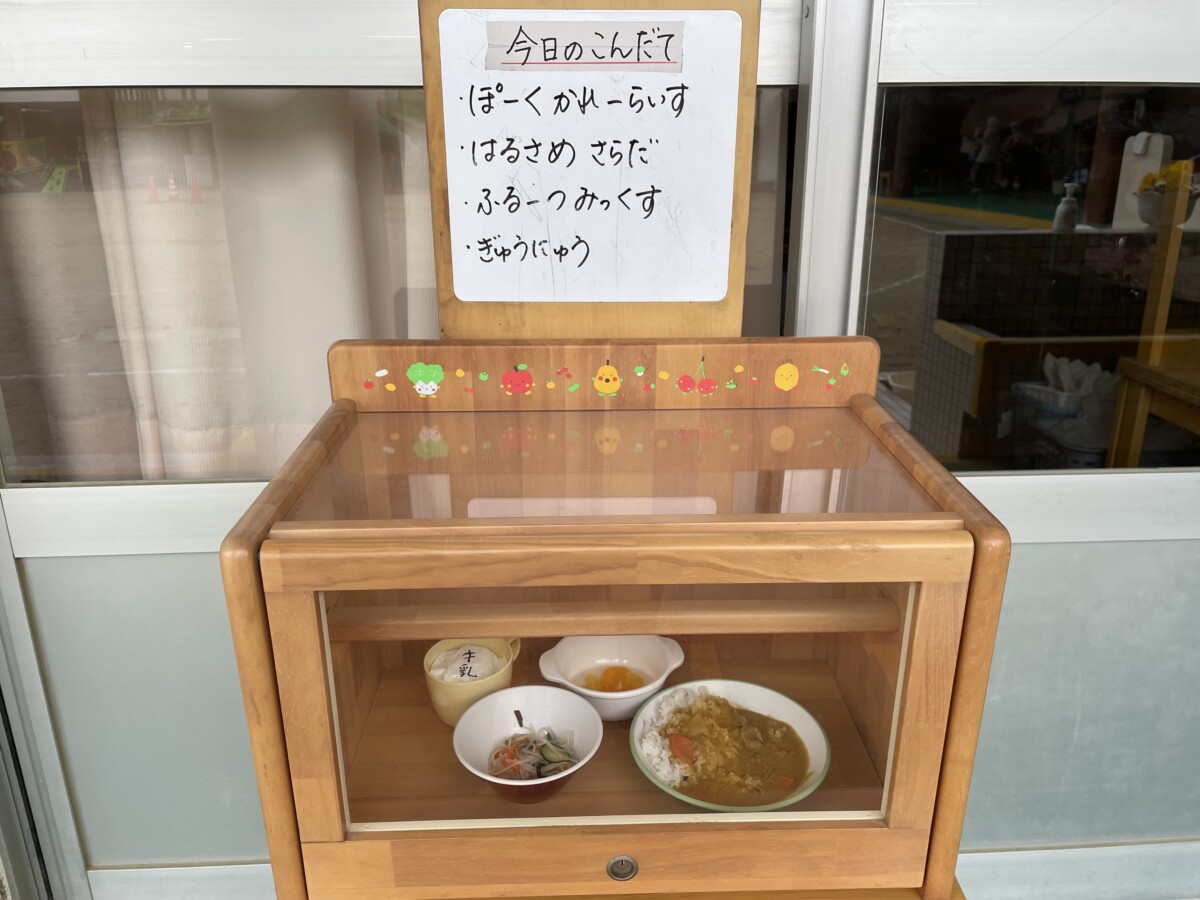 今日のこんだて
・ぽーくかれーらいす
・はるさめ さらだ
・ふるーつみっくす
・ぎゅうにゅう
牛乳